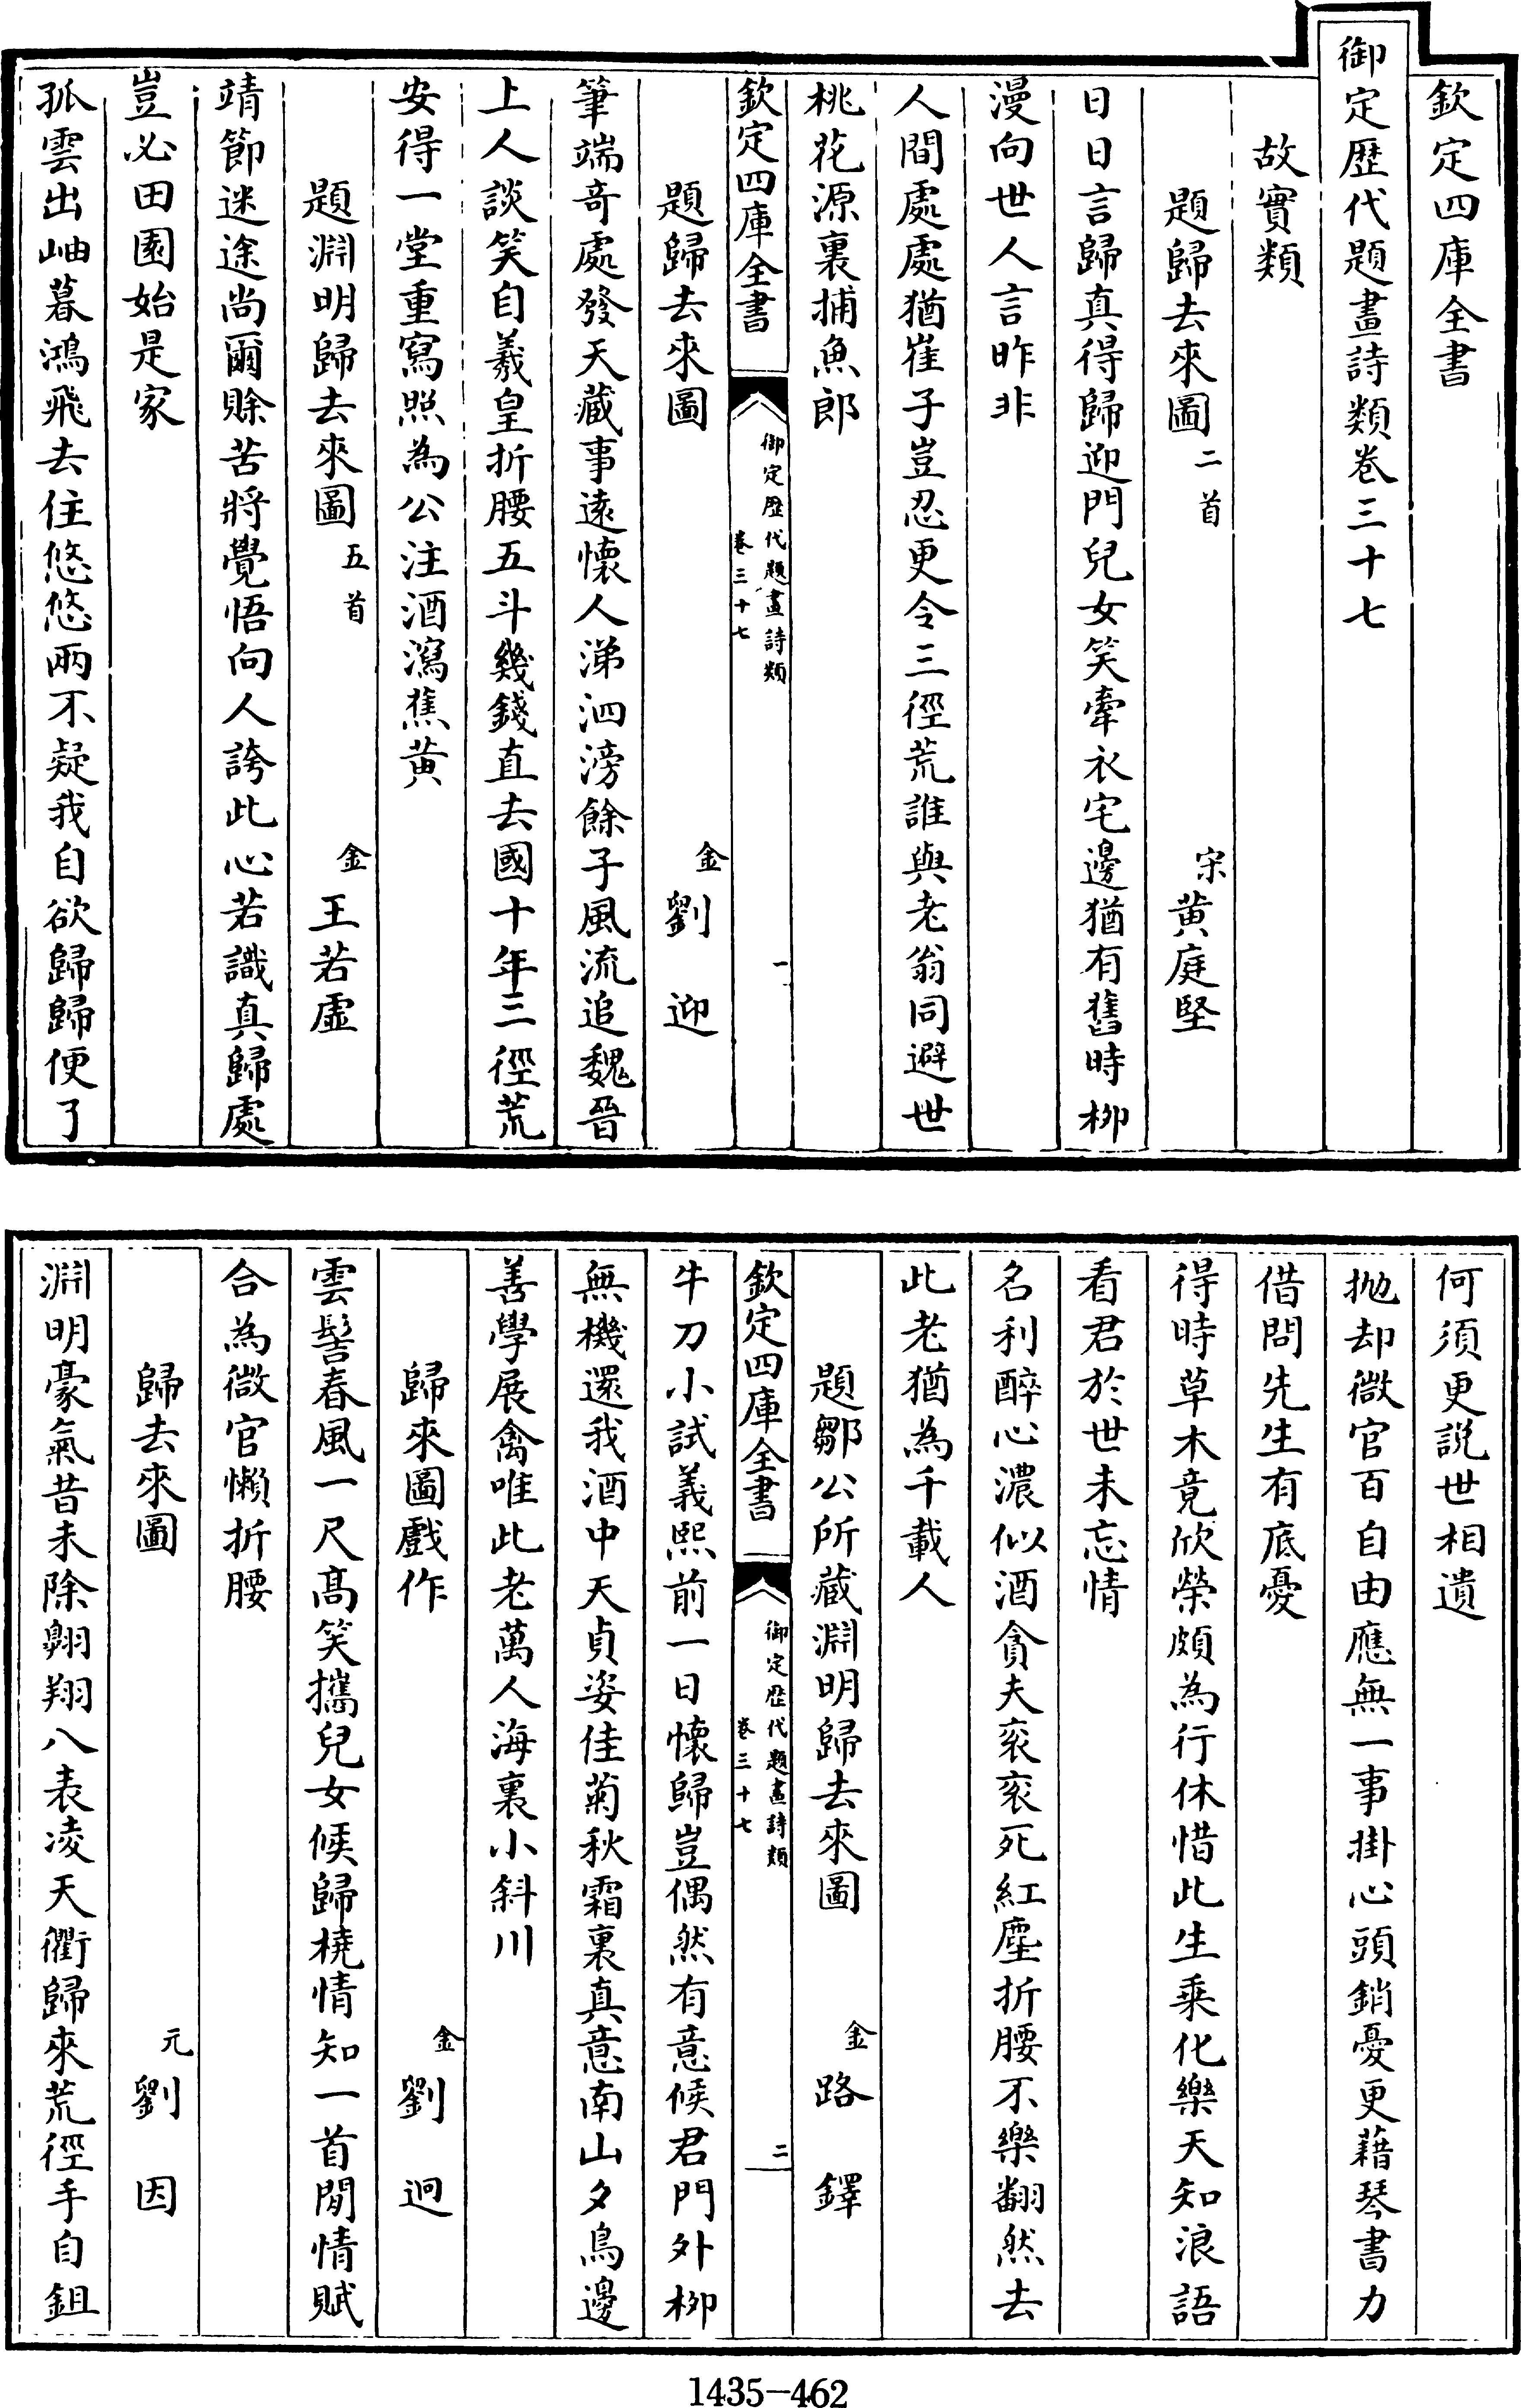 欽定四庫全書
御定歷代題畫詩類卷三十七
故實類
題歸去來圖二首 宋黃庭堅
日日言歸真得歸迎門兒女笑牽衣宅邊猶有舊時柳
漫向世人言昨非
人間處處猶崔子豈忍更令三徑荒誰與老翁同避世
桃花源裏捕魚郎
欽定四庫全書
御定歷代題畫詩類
卷三十七
一
題歸去來圖 金劉迎
筆端奇處發天藏事遠懷人涕泗滂餘子風流追魏晉
上人談笑自羲皇折腰五斗幾錢直去國十年三徑荒
安得一堂重寫照為公注酒瀉蕉黃
題淵明歸去來圖五首 金王若虛
靖節迷途尚爾賒苦將覺悟向人誇此心若識真歸處
豈必田園始是家
孤雲出岫暮鴻飛去住悠悠兩不疑我自欲歸歸便了
何須更説世相遺
抛却微官百自由應無一事掛心頭銷憂更藉琴書力
借問先生有底憂
得時草木竟欣榮頗為行休惜此生乘化樂天知浪語
看君於世未忘情
名利醉心濃似酒貪夫衮衮死紅塵折腰不樂翻然去
此老猶為千載人
題鄒公所藏淵明歸去來圖 金路鐸
欽定四庫全書
御定歷代題畫詩類
卷三十七
二
牛刀小試義熙前一日懷歸豈偶然有意候君門外柳
無機還我酒中天貞姿佳菊秋霜裏真意南山夕鳥邊
善學展禽唯此老萬人海裏小斜川
歸來圖戲作 金劉迥
雲髻春風一尺高笑攜兒女候歸橈情知一首閒情賦
合為微官懶折腰
歸去來圖 元劉因
淵明豪氣昔未除翺翔八表凌天衢歸來荒徑手自鉏
1435-462